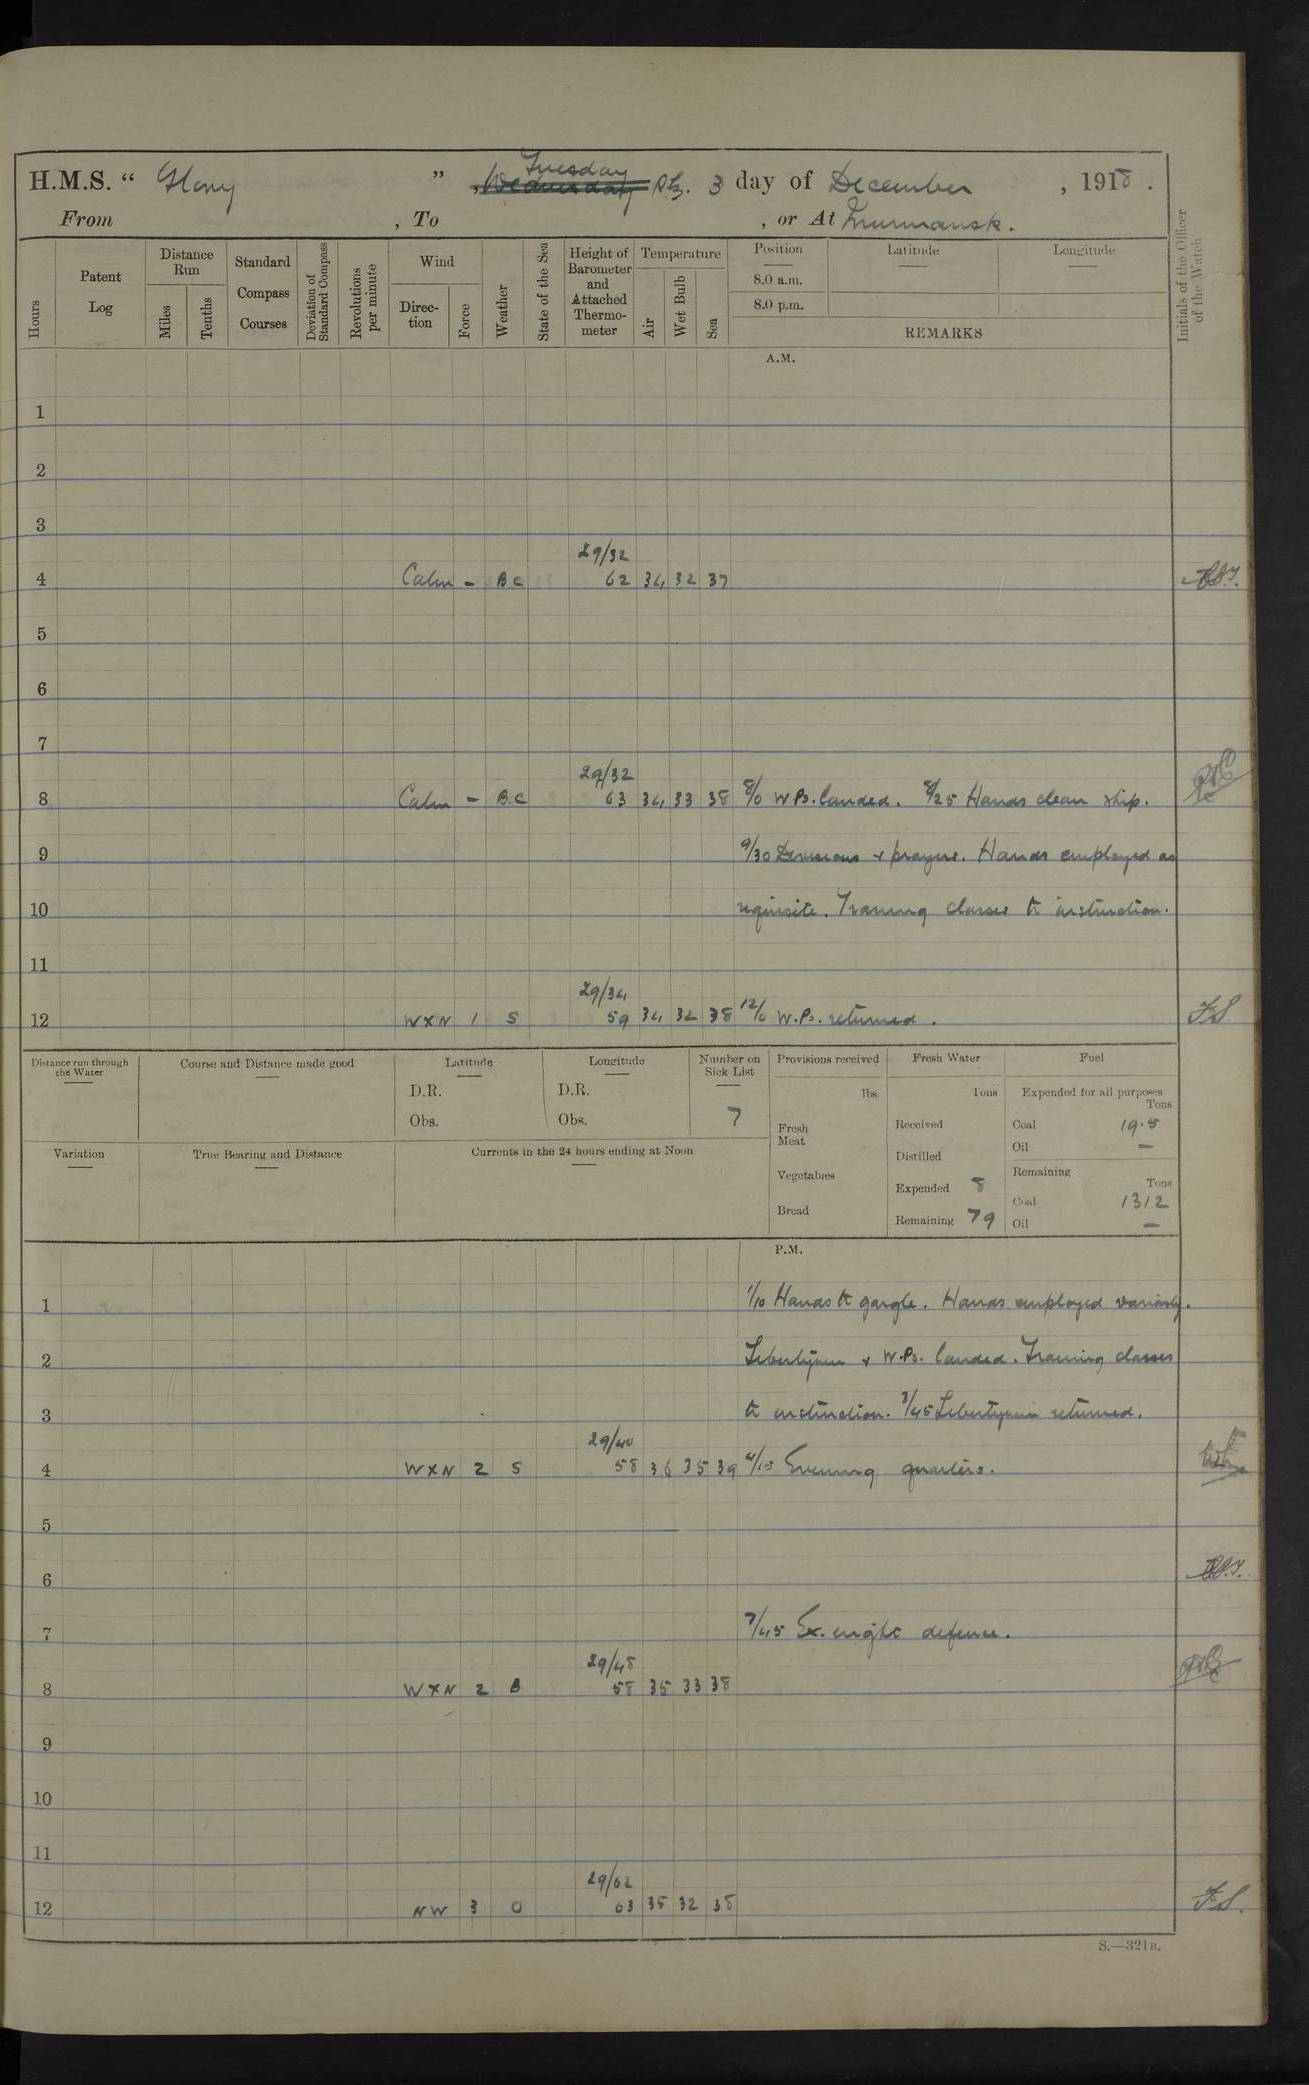 H.M.S. “ Glory ” , Tuesday
Wednesday 3 day of December , 1918 .
From , To , or At Murmansk.
Hours
Patent Log
Distance Run
Miles
Tenths
Standard Compass Courses
Deviation of Standard Compass
Revolutions per minute
Wind
Direc-tion
Force
Weather
State of the Sea
Height of Barometer and Attached Thermo-meter
Temperature
Air
Wet Bulb
Sea
Position
Latitude
Longitude
8.0 a.m.
8.0 p.m.
REMARKS
Initials of the Officer of the Watch
A.M.
1
2
3
29/32
4 Calm - BC 62 34 32 37
5
6
7
29/32
8 Calm - B.C 63 34 33 38 8/0 W.Ps. landed. 8/25 Hands clean ship.
9 9/30 Divisions + prayers. Hands employed as
10 requisite. Training classes to instruction.
11
29/34
12 WXN 1 S 59 34 32 38 12/0 W.Ps. returned. FS
Distance run through the Water
Course and Distance made good
Latitude
D.R.
Obs.
Longitude
D.R.
Obs.
Number on Sick List
7
Variation
True Bearing and Distance
Currents in the 24 hours ending at Noon
Provisions received
lbs.
Fresh Meat
Vegetables
Bread
Fresh Water
Tons
Received
Distilled
Expended 8
Remaining 79
Fuel
Expended for all purposes
Tons
Coal 19.5
Oil —
Remaining
Tons
Coal 1312
Oil —
P.M.
1 1/10 Hands to gargle. Hands employed variously.
2 Libertymen + W.Ps. landed. Training classes
3 to instruction. 3/45 Libertymen returned.
29/40
4 WXN 2 S 58 36 35 39 4/15 Evening quarters.
5
6
7 7/45 Ex. night defence.
29/48
8 WXN 2 B 58 35 33 38
9
10
11
29/62
12 NW 3 O 63 35 32 38 FS.
S.—321B.